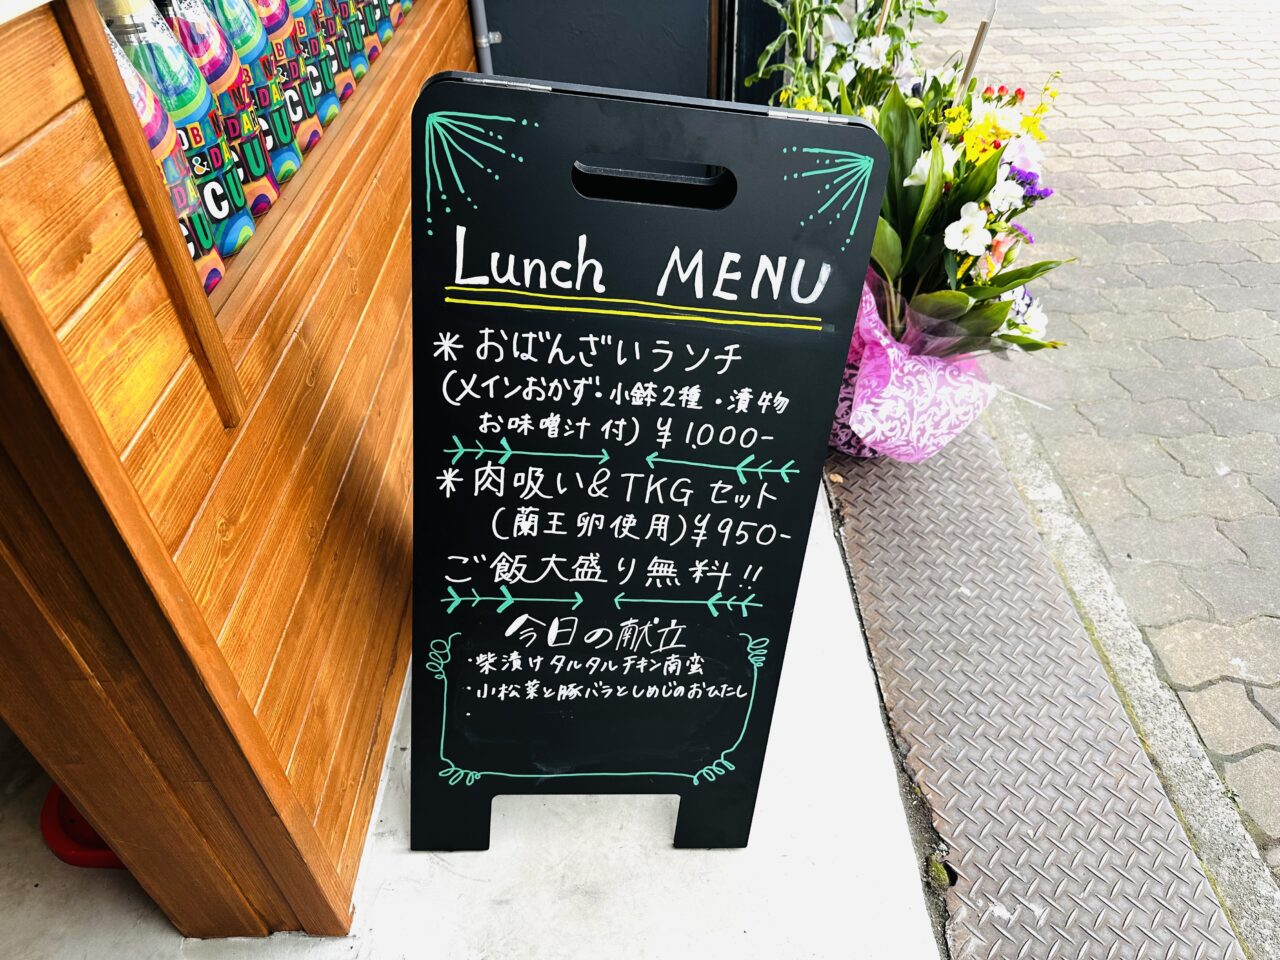 Lunch MENU
* おばんざいランチ
(メインおかず・小鉢2種・漬物
お味噌汁付) ¥1.000-
* 肉吸い&TKGセット
(蘭王卵使用) ¥950-
ご飯大盛り無料!!
今日の献立
・柴漬けタルタルチキン南蛮
・小松菜と豚バラとしめじのおひたし
・